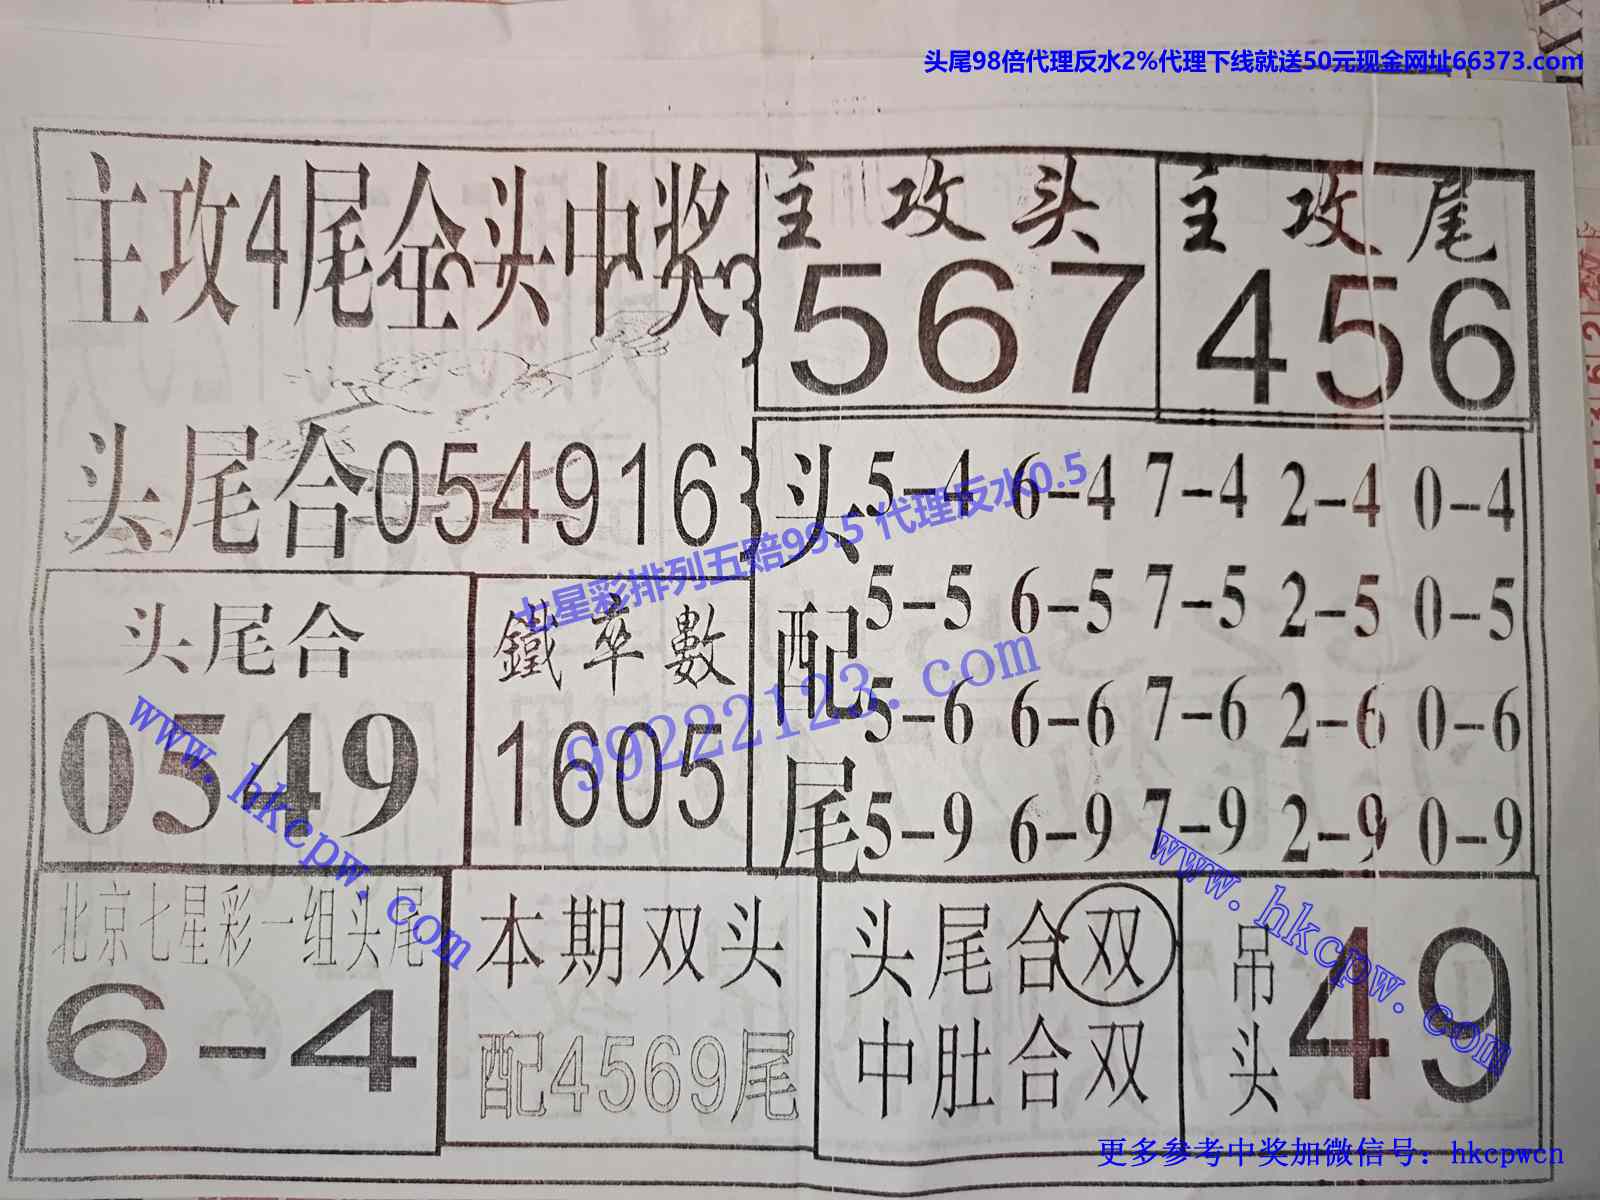 头尾98倍代理反水2%代理下线就送50元现金网址66373.com
主攻4尾全头中奖
主攻头
567
主攻尾
456
头尾合054916
头配尾
5-4 6-4 7-4 2-4 0-4
5-5 6-5 7-5 2-5 0-5
5-6 6-6 7-6 2-6 0-6
5-9 6-9 7-9 2-9 0-9
七星彩排列五赔99.5 代理反水0.5
99222123.com
头尾合
0549
鐵率數
1605
www.hkcpw.com
www.hkcpw.com
北京七星彩一组头尾
6-4
本期双头
配4569尾
头尾合双
中肚合双
吊头
49
更多参考中奖加微信号：hkcpwcn